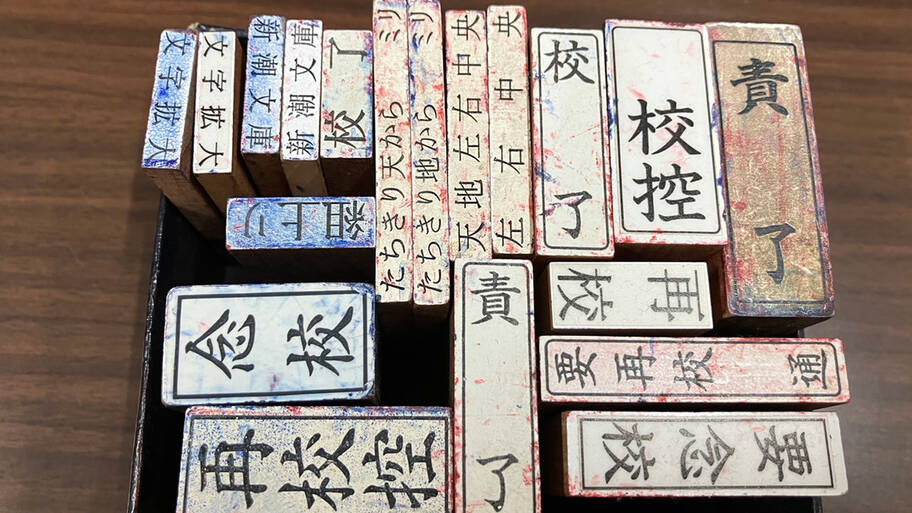 文字拡大
文字拡大
新潮文庫
新潮文庫
校了
たちきり天から ミリ
たちきり地から ミリ
天地左右中央
左右中央
校了
校控
責了
細ケン
念校
責了
再校
要再校 通
再校控
要念校